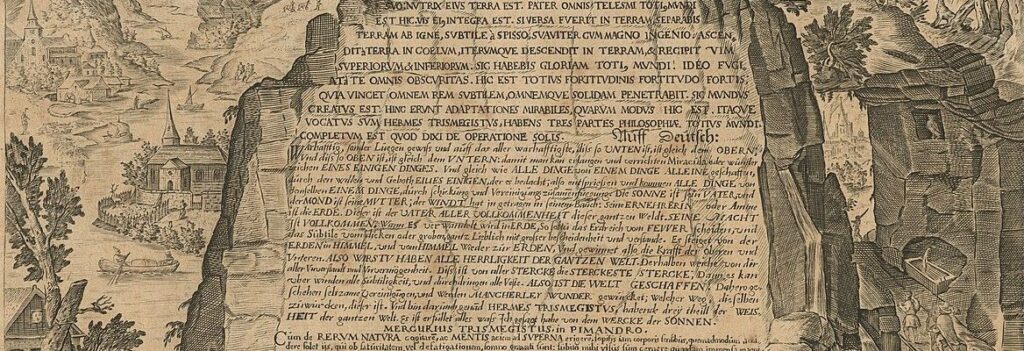 SVO. NVTRIX EIUS TERRA EST. PATER OMNIS TELESMI TOTI, MUNDI
EST HIC. VIS EI, INTEGRA EST. SI VERSA FUERIT IN TERRAM, SEPARABIS
TERRAM AB IGNE, SUBTILE à SPISSO, SUAVITER CUM MAGNO INGENIO. ASCEN,
DIT à TERRA IN COELUM, ITERUMQVE DESCENDIT IN TERRAM, & RECIPIT VIM
SUPERIORUM & INFERIORUM. SIC HABEBIS GLORIAM TOTI, MUNDI. IDEO FUGI,
AT à TE OMNIS OBSCURITAS. HIC EST TOTIUS FORTITUDINIS FORTITUDO FORTIS,
QVIA VINCET OMNEM REM SUBTILEM, OMNEMQVE SOLIDAM PENETRABIT. SIC MUNDUS
CREATUS EST. HINC ERUNT ADAPTATIONES MIRABILES, QVARUM MODUS HIC EST. ITAQVE
VOCATUS SUM HERMES TRISMEGISTUS, HABENS TRES PARTES PHILOSOPHIÆ TOTIUS MUNDI.
COMPLETUM EST QVOD DIXI DE OPERATIONE SOLIS. Auff Deutsch:
Warhafftig, sonder Luegen gewiss und auff das aller warhafftigste, diss so UNTEN ist, ist gleich dem OBERN,
Und diss so OBEN ist, ist gleich dem UNTERN: damit man kan erlangen und verrichten Miracula oder wunder
zeichen EINES EINIGEN DINGES. Und gleich wie ALLE DINGE von EINEM DINGE ALLEINE geschaffen,
durch den willen und Geboth EINES EINIGEN, der es bedacht; also entspriessen und kommen ALLE DINGE von
demselben EINEM DINGE, durch schickung und Vereinigung zusammen. Die SONNE ist sein VATER, und
der MOND ist seine MUTTER; der WINDT hat in getragen in seinem Bauch: Seine ERNEHRERIN oder Amme
ist die ERDE. Dieser ist der VATER ALLER VOLLKOMMENHEIT dieser gantzen Weldt. SEINE MACHT
IST VOLLKOMMEN, Wann ES verwandelt wird in ERDE, So soltu das Erdreich vom FEWER scheiden, und
das Subtile vom dicken oder groben, gantz Lieblich mit grosser bescheidenheit und verstande. Es steiget von der
ERDEN in HIMMEL, und vom HIMMEL Wieder zur ERDEN, Und gewinnet also die Krafft der Oberen und
Unteren. ALSO WIRSTU HABEN ALLE HERRLIGKEIT DER GANTZEN WELT, Derhalben weiche von dir
aller Unverstandt und Unvermögenheit. Diss ist von aller STERCKE die STERCKESTE STERCKE, Dann es kan
uber winden alle Subtiligkeit, und durchdringen alle Veste. ALSO IST DIE WELT GESCHAFFEN. Dahero ge,
schehen seltzame Vereinigungen, und werden MANCHERLEY WUNDER gewürcket, welcher Weg, dieselben
zuwürcken, dieser ist. Und bin darumb genand HERMES TRISMEGISTUS, habende drey theill der WEIS,
HEIT der gantzen Welt. Es ist erfüllet alles was Ich gesagt habe von dem WERCKE der SONNEN.
MERCURIUS TRISMEGISTUS, in PIMANDRO.
Cum de RERUM NATURA cogitarem, ac MENTIS aciem ad SUPERNA erigerem, sopitis iam corporis sensibus, quemadmodum acci,
dere solet iis, qui ob saturitatem, vel defatigationem, somno gravati sunt: subito mihi visus sum cernere quendam immensa